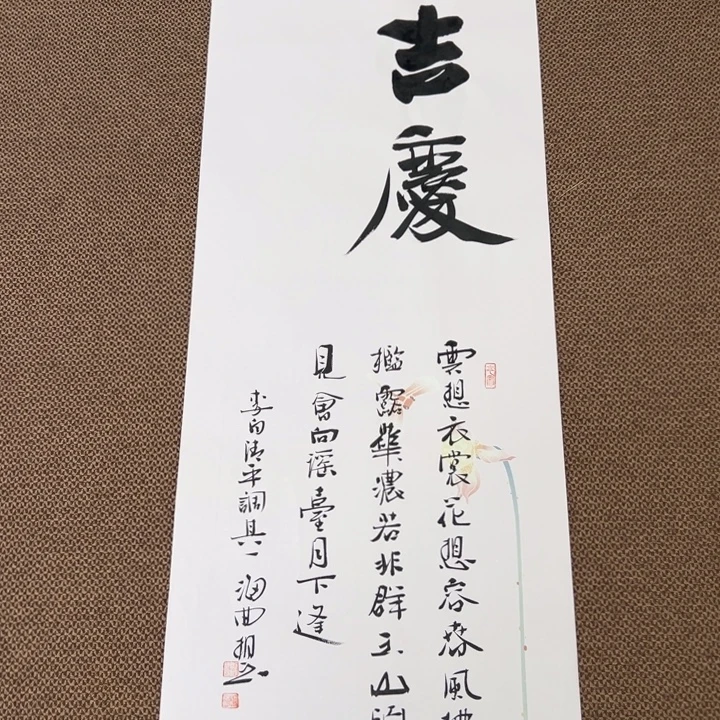 吉慶
雲想衣裳花想容春風拂
檻露華濃若非群玉山頭
見會向瑤臺月下逢
李白清平調其一